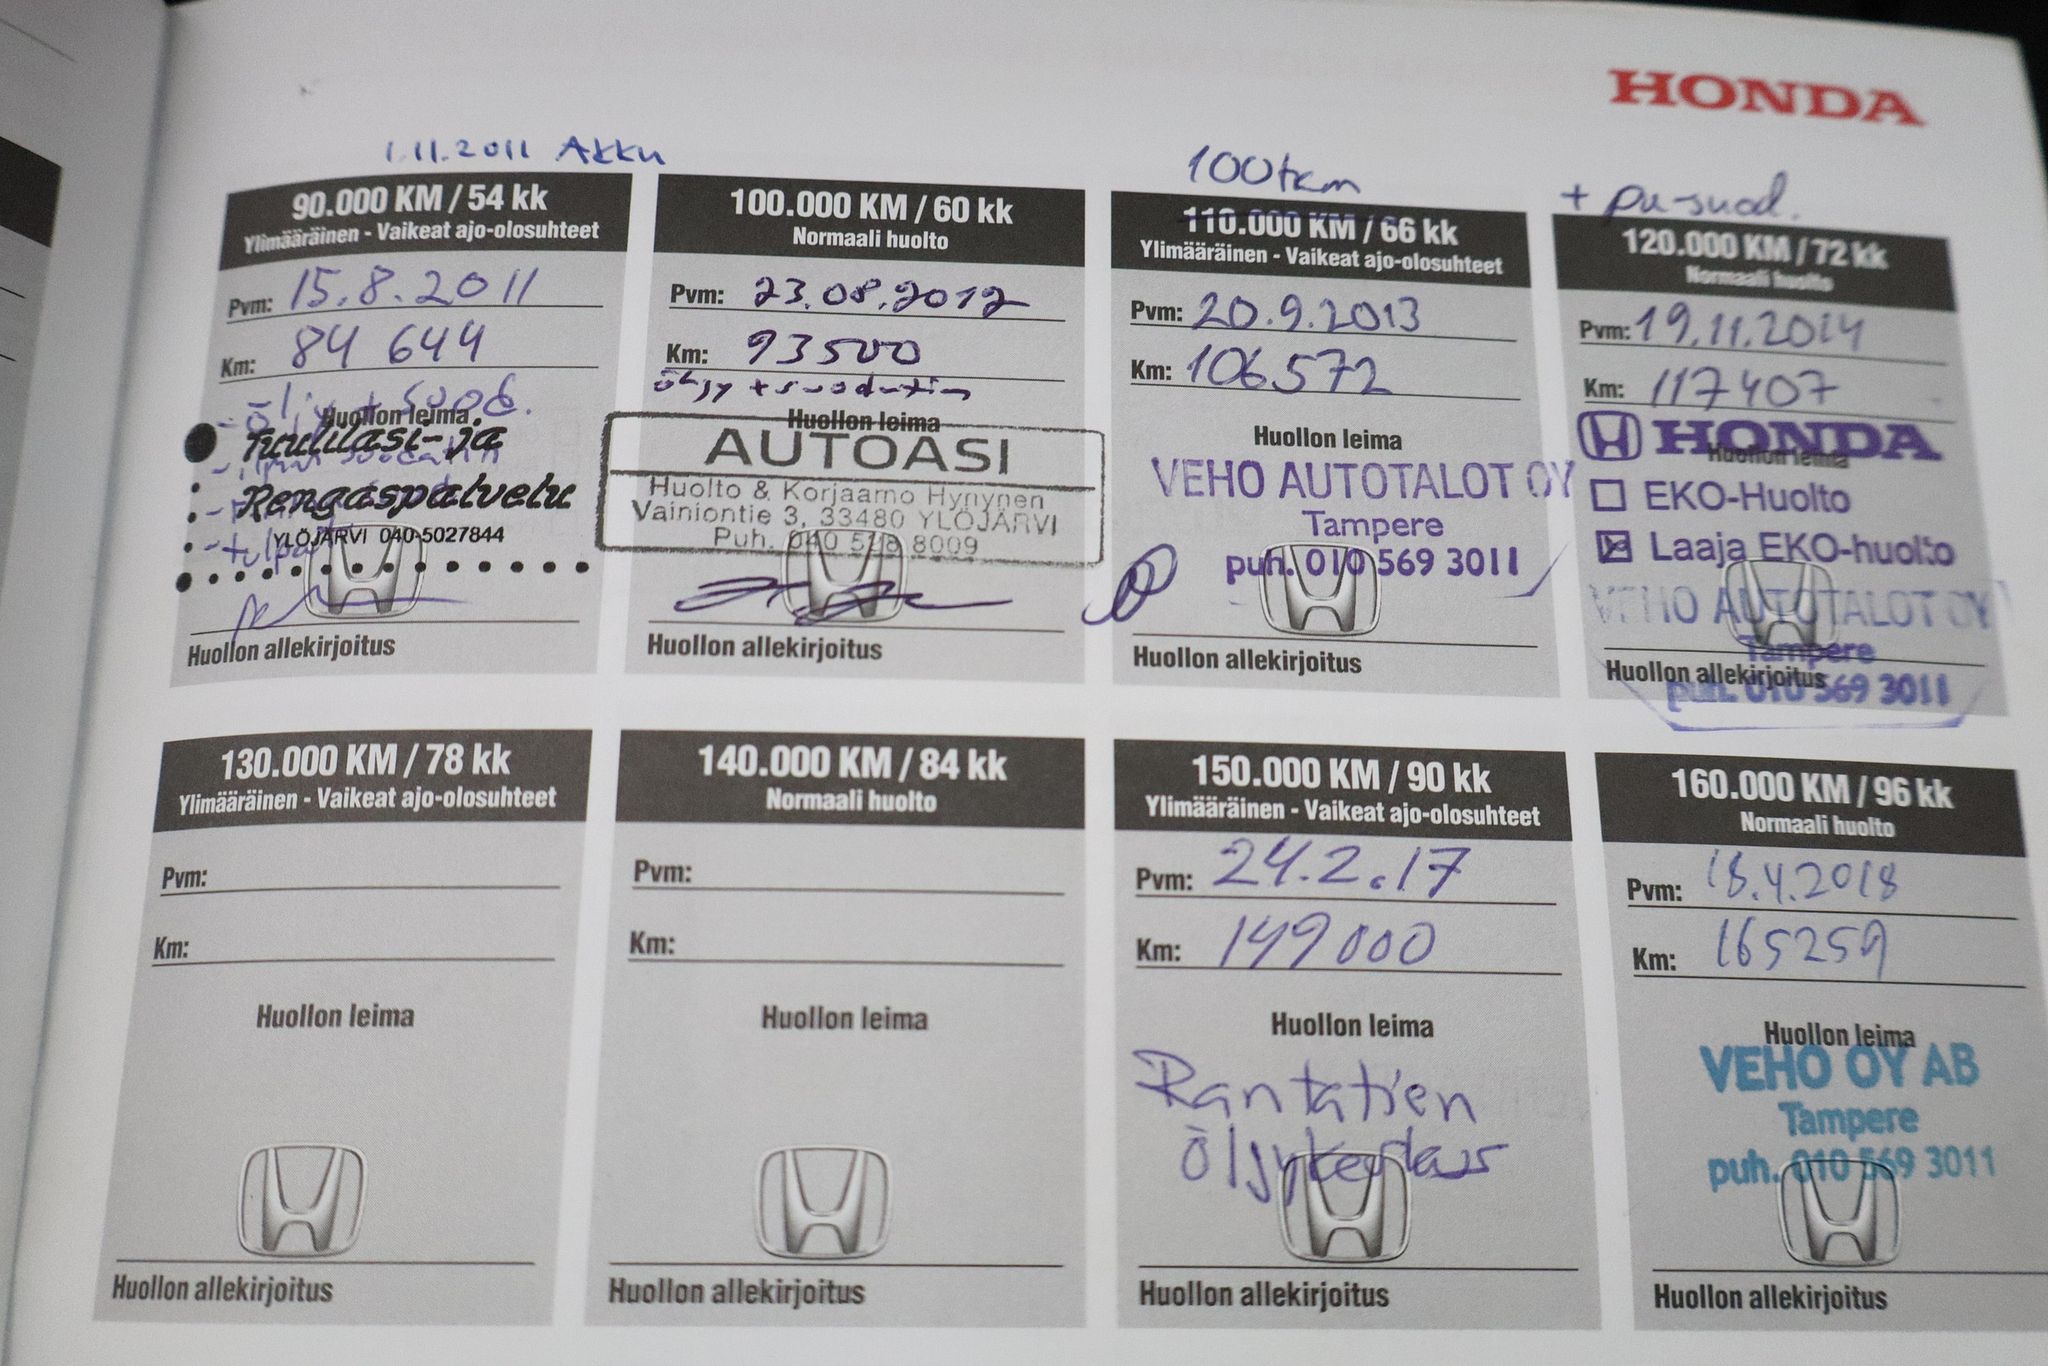 HONDA
1.11.2011 Akku
90.000 KM / 54 kk
Ylimääräinen - Vaikeat ajo-olosuhteet
Pvm: 15.8.2011
Km: 84 644
- öljy + suod.
Huollon leima
Tuulilasi- ja
Rengaspalvelu
YLÖJÄRVI 040-5027844
Huollon allekirjoitus
100.000 KM / 60 kk
Normaali huolto
Pvm: 23.08.2012
Km: 93500
öljy + suodatin
Huollon leima
AUTOASI
Huolto & Korjaamo Hynynen
Vainiontie 3, 33480 YLÖJÄRVI
Puh. 040 528 8009
Huollon allekirjoitus
100tkm
110.000 KM / 66 kk
Ylimääräinen - Vaikeat ajo-olosuhteet
Pvm: 20.9.2013
Km: 106572
Huollon leima
VEHO AUTOTALOT OY
Tampere
puh. 010 569 3011
Huollon allekirjoitus
+ pu-suod.
120.000 KM / 72 kk
Normaali huolto
Pvm: 19.11.2014
Km: 117407
HONDA
Huollon leima
EKO-Huolto
Laaja EKO-huolto
VEHO AUTOTALOT OY
Tampere
Huollon allekirjoitus
puh. 010 569 3011
130.000 KM / 78 kk
Ylimääräinen - Vaikeat ajo-olosuhteet
Pvm:
Km:
Huollon leima
Huollon allekirjoitus
140.000 KM / 84 kk
Normaali huolto
Pvm:
Km:
Huollon leima
Huollon allekirjoitus
150.000 KM / 90 kk
Ylimääräinen - Vaikeat ajo-olosuhteet
Pvm: 24.2.17
Km: 149000
Huollon leima
Rantatien
Öljykeskus
Huollon allekirjoitus
160.000 KM / 96 kk
Normaali huolto
Pvm: 18.4.2018
Km: 165259
Huollon leima
VEHO OY AB
Tampere
puh. 010 569 3011
Huollon allekirjoitus